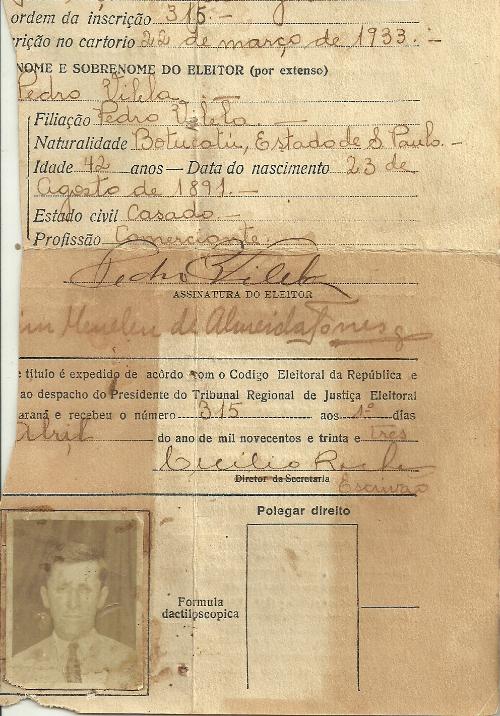 ordem da inscrição 315.-
rição no cartorio 22 de março de 1933.-
NOME E SOBRENOME DO ELEITOR (por extenso)
Pedro Vilela.-
Filiação Pedro Vilela.-
Naturalidade Botucatu, Estado de S. Paulo.-
Idade 42 anos — Data do nascimento 23 de
Agosto de 1891.-
Estado civil Casado.-
Profissão Comerciante.-
Pedro Vilela
ASSINATURA DO ELEITOR
de Almeida Torres
e título é expedido de acôrdo com o Codigo Eleitoral da República e
ao despacho do Presidente do Tribunal Regional de Justiça Eleitoral
araná e recebeu o número 315 aos 1º dias
Abril do ano de mil novecentos e trinta e tres
Cecilio Rocha
Diretor da Secretaria Escrivão
Polegar direito
Formula
dactiloscopica